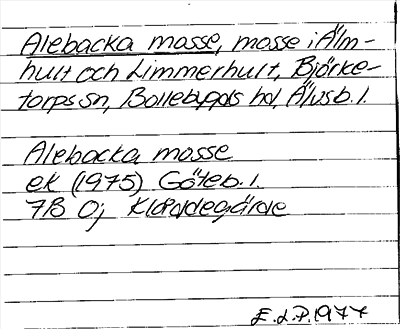 Alebacka mosse, mosse i Älm-
hult och Limmerhult, Björke-
torps sn, Bollebygds hd, Älvsb. l.
Alebacka mosse
ek (1975) Göteb. l.
7B 0j Klåddegärde
E.L.P. 1977